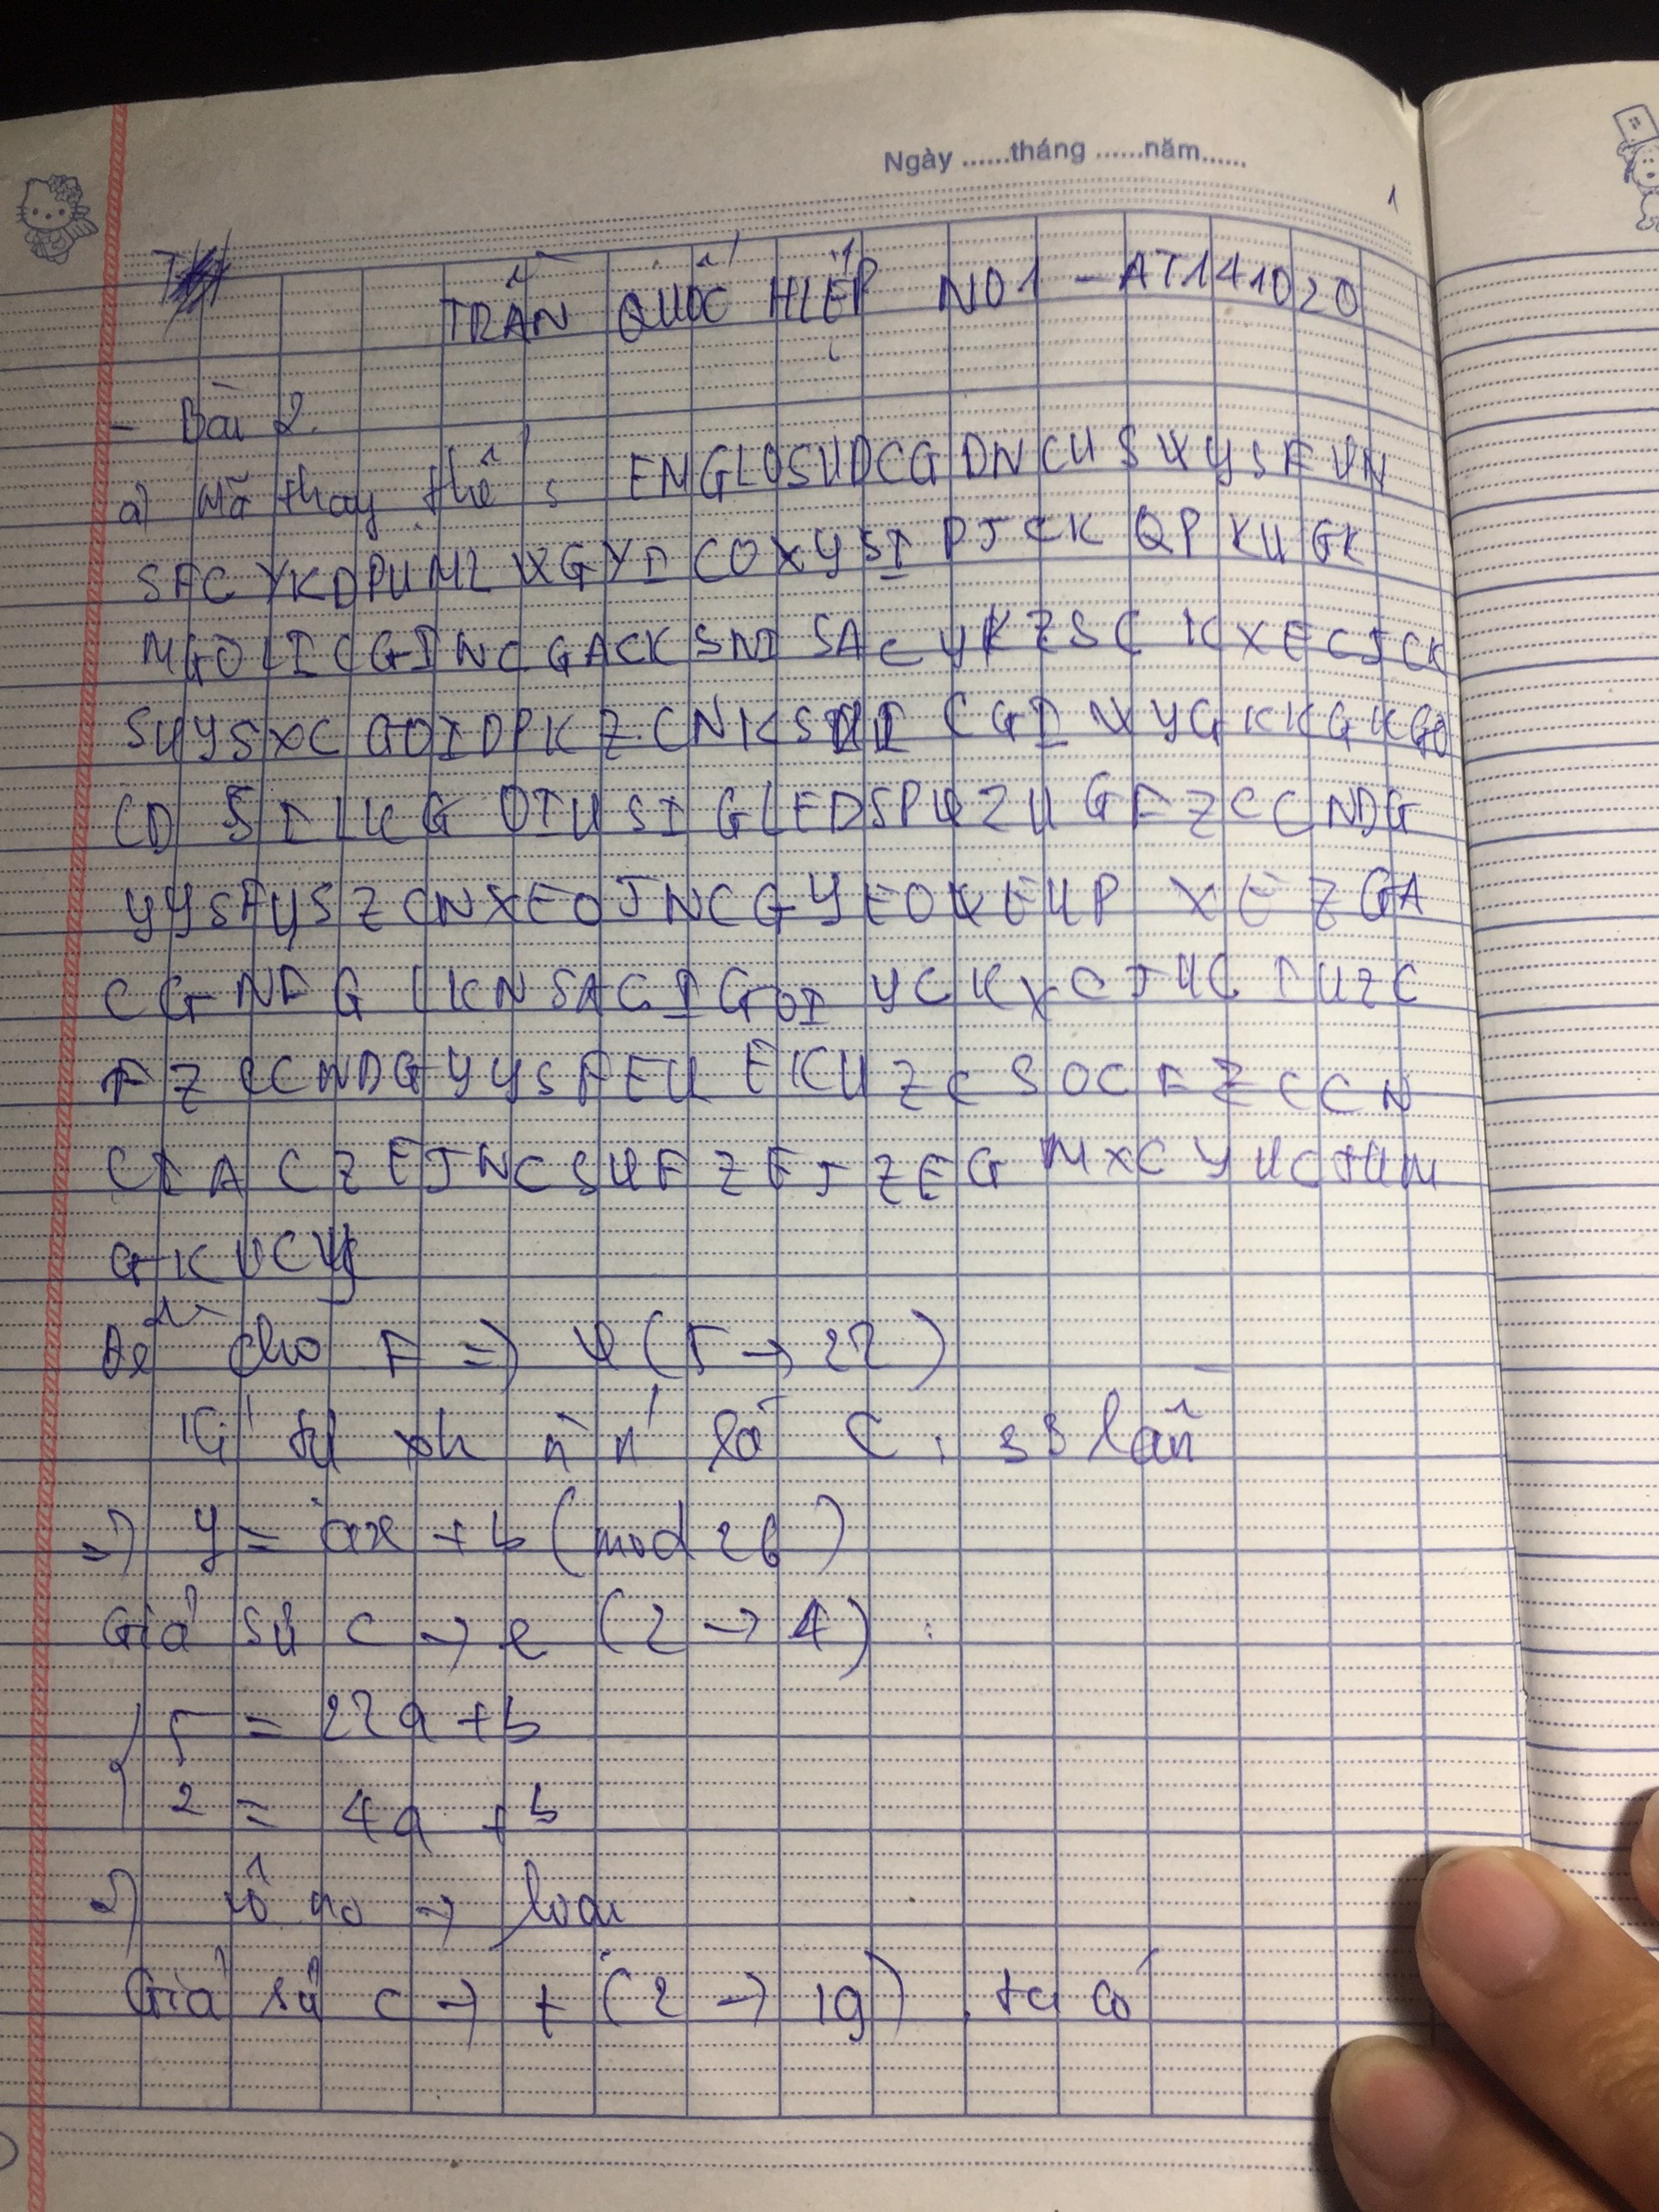 Ngày ......tháng ......năm......
1
TRẦN QUỐC HIỆP N01 - AT141020
- Bài 2.
a) Mã thay thế : EMGLOSUDCGDNCUSWYSFHN
SFCYKDPUMLWGYICOXYSIPJCKQPKUGK
MGOLICGINCGACKSNISACYKZSCKXECJCK
SHYSXCGOIDPKZCNKSHICGIWYGKKGKGO
CDSILKGOIUSIGLEDSPWZUGFZCCNDG
YYSFUSZCNXEOJNCGYEOWEUPXEZGA
CGNFGLKNSACIGOIYCKXCJUCIUZC
FZCCNDGYYSFEUEKUZCSOCFZCCN
CIACZEJNCSHFZEJZEGMXCYHCJUM
GKUCY
Đề cho F => W (5 → 22)
Kí tự xh n n là C : 33 lần
=> y = ax + b (mod 26)
Giả sử C → e (2 → 4) :
5 = 22a + b
2 = 4a + b
=> vô no → loại
Giả sử C → t (2 → 19) , ta có